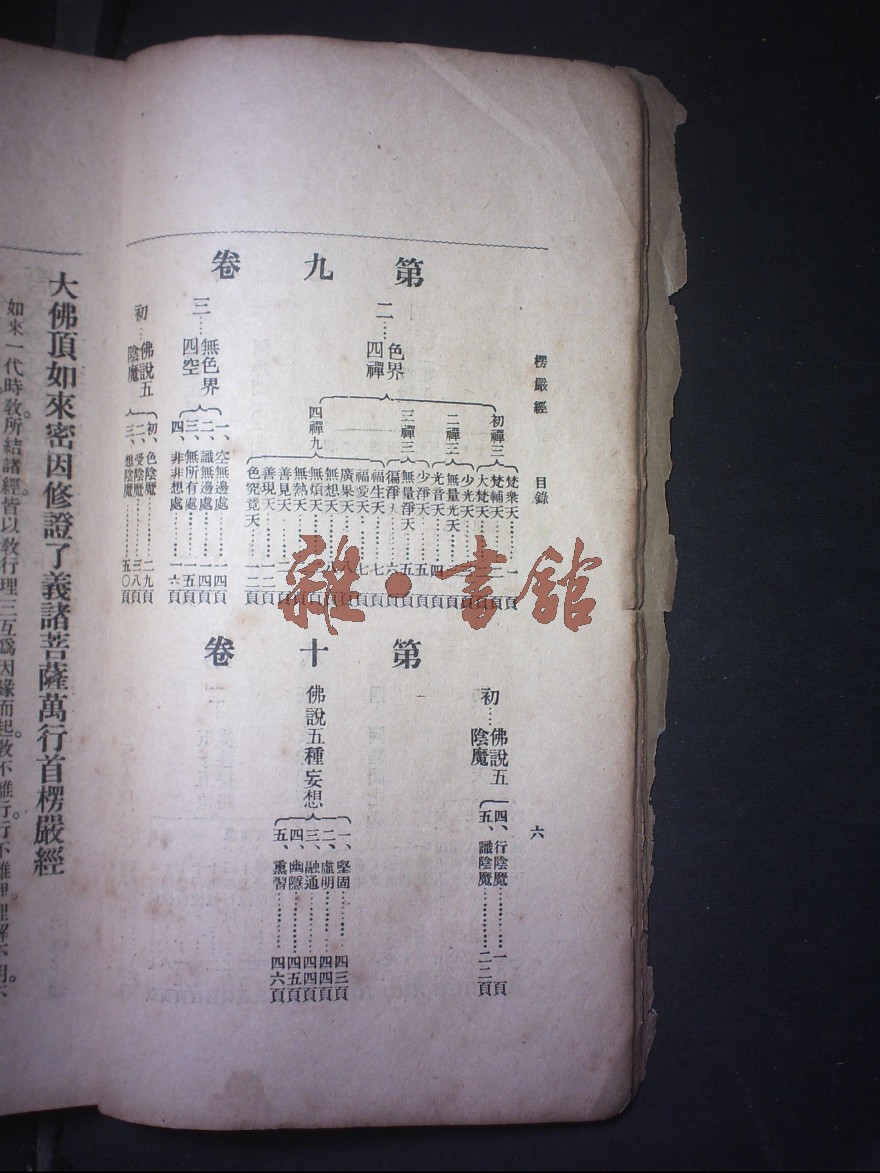 楞嚴經 目錄 六
第九卷
二……色界四禪
初禪三
梵衆天……一頁
梵輔天
大梵天
二禪三
少光天
無量光天
光音天……四頁
三禪三
少淨天……五頁
無量淨天……五頁
徧淨天……六頁
四禪九
福生天……七頁
福愛天……七頁
廣果天……八頁
無想天……八頁
無煩天
無熱天
善見天
善現天……一二頁
色究竟天……一二頁
三……無色界四空
一、空無邊處……一四頁
二、識無邊處……一四頁
三、無所有處……一五頁
四、非非想處……一六頁
初……佛說五陰魔
初、色陰魔……二九頁
二、受陰魔……三八頁
三、想陰魔……五〇頁
第十卷
初……佛說五陰魔
四、行陰魔……一頁
五、識陰魔……二二頁
佛說五種妄想
一、堅固……四三頁
二、虛明……四四頁
三、融通……四四頁
四、幽隱……四五頁
五、熏習……四六頁
大佛頂如來密因修證了義諸菩薩萬行首楞嚴經
如來一代時敎。所結諸經皆以敎行理三互爲因緣而起。敎不離行。行不離理。理解不明。不
雜·書館